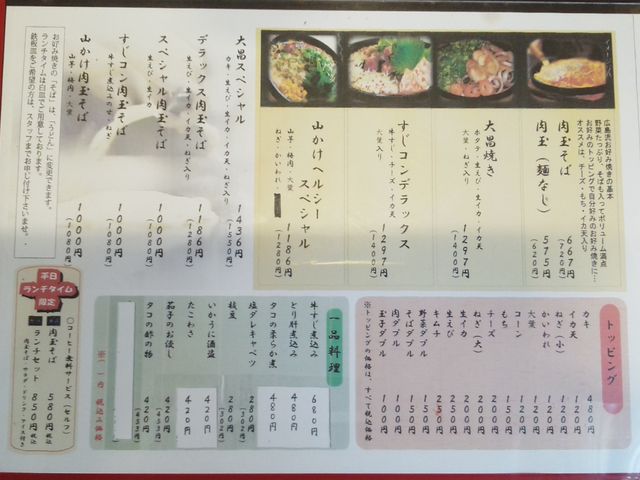 広島流お好み焼きの基本
野菜たっぷり、そばも入ってボリューム満点
お好みのトッピングで自分好みのお好み焼きに…
オススメは、チーズ・もち・イカ天入り
肉玉そば
667円
(720円)
肉玉(麺なし)
575円
(620円)
大昌焼き
ホタテ・生えび・生イカ・イカ天
大葉・ねぎ入り
1297円
(1400円)
すじコンデラックス
牛すじ・コーン・チーズ・イカ天
大葉入り
1297円
(1400円)
山かけヘルシー
スペシャル
山芋・梅肉・大葉
ねぎ・かいわれ
1186円
(1280円)
大昌スペシャル
カキ・生えび・生イカ・イカ天・ねぎ入り
1436円
(1550円)
デラックス肉玉そば
生えび・生イカ・イカ天・ねぎ入り
1186円
(1280円)
スペシャル肉玉そば
生えび・生イカ
1000円
(1080円)
すじコン肉玉そば
牛すじ煮込みのせ・ねぎ
1000円
(1080円)
山かけ肉玉そば
山芋・梅肉・大葉
1000円
(1080円)
お好み焼きの「そば」は、「うどん」に変更できます。
ランチタイムは白皿でご用意しております。
鉄板皿をご希望の方は、スタッフまでお申し付け下さいませ。
トッピング
カキ 480円
イカ天 120円
ねぎ(小) 120円
かいわれ 120円
大葉 120円
コーン 120円
もち 150円
チーズ 200円
ねぎ(大) 200円
生イカ 250円
生えび 250円
キムチ 250円
野菜ダブル 150円
そばダブル 150円
肉ダブル 150円
玉子ダブル 100円
※トッピングの価格は、すべて税込価格
一品料理
牛すじ煮込み 680円
とり肝煮込み 480円
タコの柔らか煮 480円
塩ダレキャベツ 280円
(302円)
枝豆 280円
(302円)
いかうに酒盗 420円
たこわさ 420円
茄子のお浸し 420円
(453円)
タコの酢の物 420円
(453円)
※( )内、税込み価格
平日
ランチタイム
限定
○コーヒー無料サービス(セルフ)
肉玉そば 580円 税込
ランチセット 850円 税込
肉玉そば サラダ・ドリンク・アイス付き